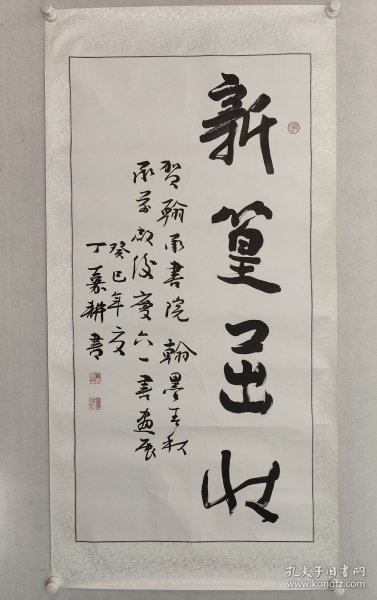 新篁茁壮
贺翰承書院翰墨春秋
承前啟後慶六一書畫展
癸巳年夏
丁嘉耕書
孔夫子旧书网
www.kongfz.com